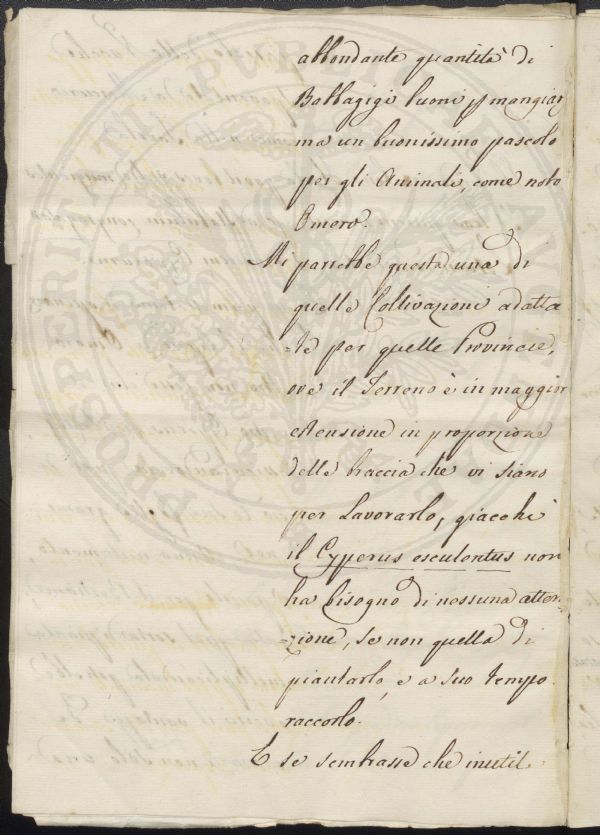 abbondante quantità di
Babbagigi buoni p mangiar
ma un buonissimo pascolo
per gli Animali, come notò
Omero.
Mi parrebbe questa una di
quelle Coltivazioni adatta
=te per quelle Provincie,
ove il Terreno è in maggior
estensione in proporzione
delle braccia che vi siano
per Lavorarlo, giacchè
il Cyperus esculentus non
ha bisogno di nessuna atten-
=zione, se non quella di
piantarlo, e a suo tempo
raccorlo.
E se sembrasse che inutil-